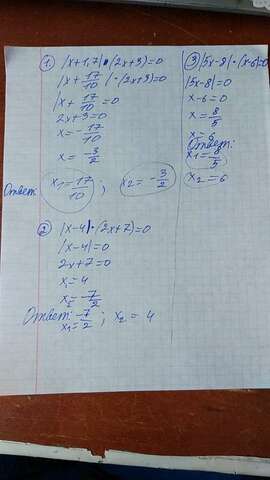 ① |x+1,7|•(2x+3)=0
|x+17/10|•(2x+3)=0
|x+17/10|=0
2x+3=0
x=-17/10
x=-3/2
Ответ: x₁=17/10; x₂=-3/2
② |x-4|•(2x+7)=0
|x-4|=0
2x+7=0
x=4
x=-7/2
Ответ: x₁=-7/2; x₂=4
③ |5x-8|•(x-6)=0
|5x-8|=0
x-6=0
x=8/5
x=6
Ответ:
x₁=8/5
x₂=6